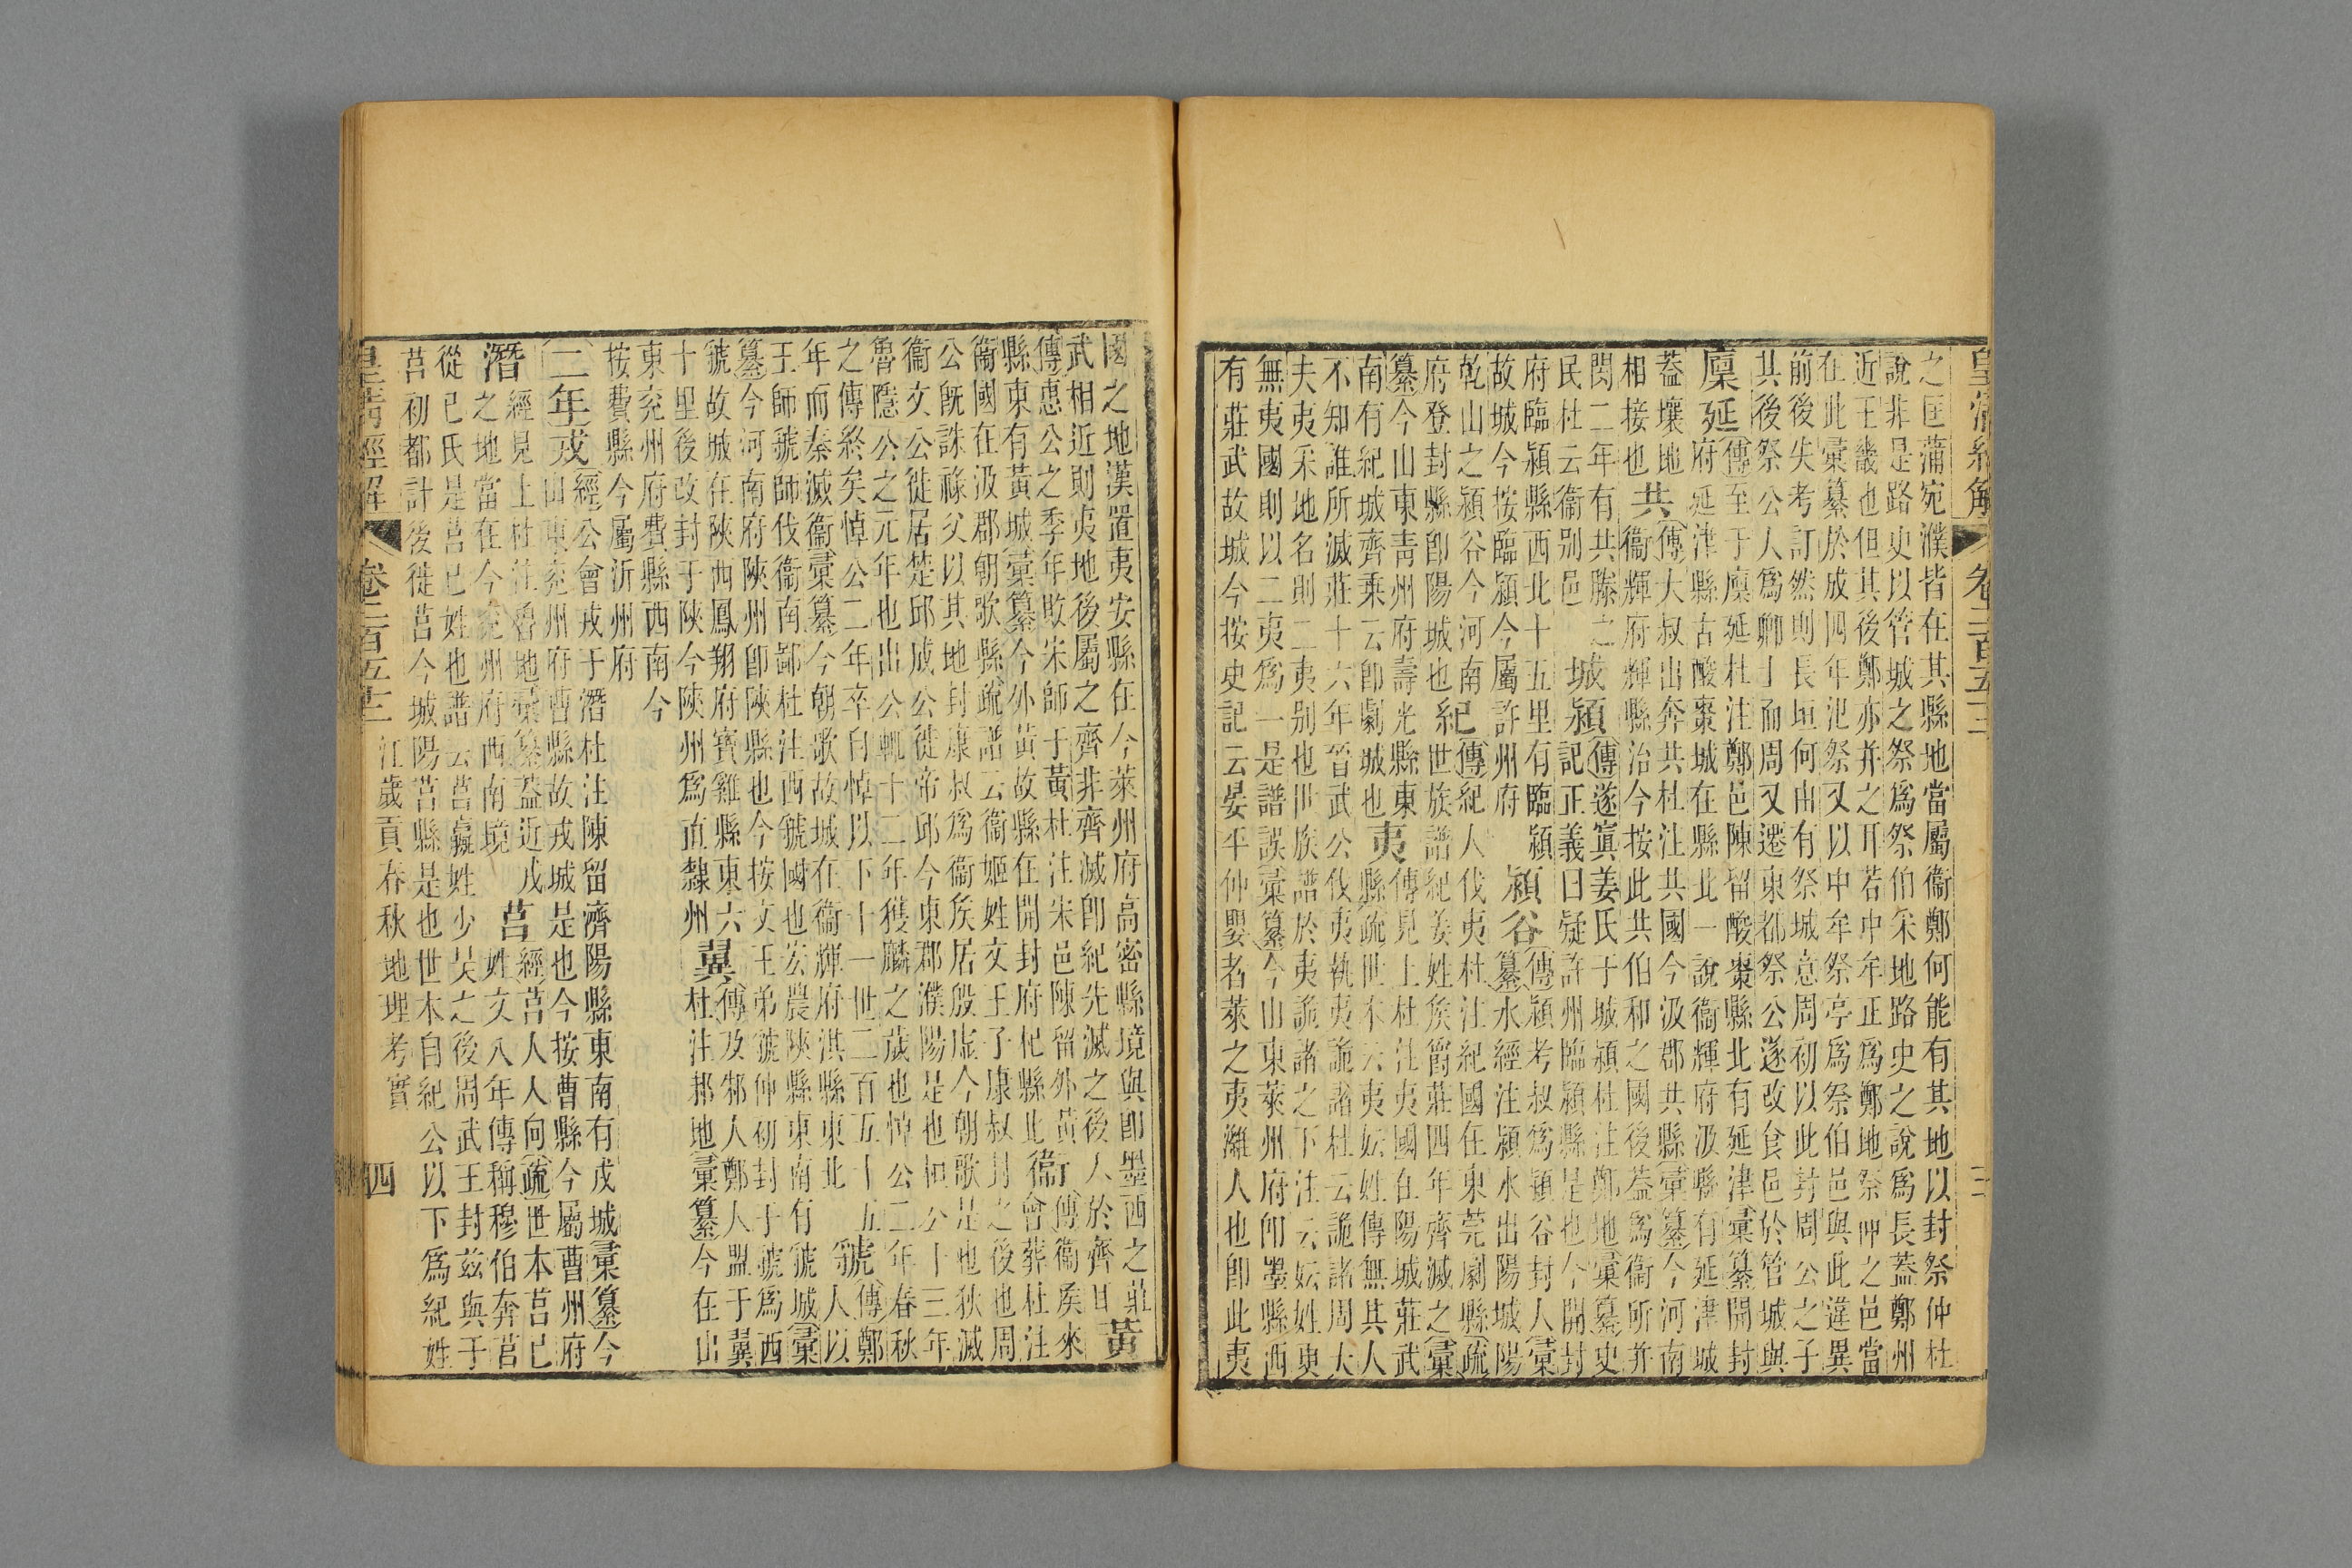 皇淸經解 卷二百五十三
之匡蒲宛濮皆在其縣地當屬衞鄭何能有其地以封祭仲杜
說非是路史以管城之祭爲祭伯宋地路史之說爲長蓋鄭州
近王畿也但其後鄭亦幷之耳若中牟正爲鄭地祭仲之邑當
在此彙纂於成四年汜祭又以中牟祭亭爲祭伯邑與此違異
前後失考訂然則長垣何由有祭城意周初以此封周公之子
其後祭公人爲卿士而周又遷東都祭公遂改食邑於管城與
廩延 傳至于廩延杜注鄭邑陳留酸棗縣北有延津彙纂開封
府延津縣古酸棗城在縣北一說衞輝府汲縣有延津城
蓋壤地 共 傳大叔出奔共杜注共國今汲郡共縣彙纂今河南
相接也 衞輝府輝縣治今按此共伯和之國後蓋爲衞所幷
閔二年有共滕之 城潁 傳遂寘姜氏于城潁杜注鄭地彙纂史
民杜云衞别邑 記正義曰疑許州臨潁縣是也今開封
府臨潁縣西北十五里有臨潁 潁谷 傳潁考叔爲潁谷封人彙
故城今按臨潁今屬許州府 纂水經注潁水出陽城陽
乾山之潁谷今河南 紀 傳紀人伐夷杜注紀國在東莞劇縣疏
府登封縣卽陽城也 世族譜紀姜姓矦爵莊四年齊滅之彙
纂今山東靑州府壽光縣東 夷 傳見上杜注夷國在陽城莊武
南有紀城齊乘云卽劇城也 縣疏世本云夷妘姓傳無其人
不知誰所滅莊十六年晉武公伐夷執夷詭諸杜云詭諸周大
夫夷采地名則二夷别也世族譜於夷詭諸之下注云妘姓更
無夷國則以二夷爲一是譜誤彙纂今山東萊州府卽墨縣西
有莊武故城今按史記云晏平仲嬰者萊之夷濰人也卽此夷
國之地漢置夷安縣在今萊州府高密縣境與卽墨西之莊 黃
武相近則夷地後屬之齊非齊滅卽紀先滅之後人於齊
傳惠公之季年敗宋師于黃杜注宋邑陳留外黃 衞 傳衞矦來
縣東有黃城彙纂今外黃故縣在開封府杞縣北 會葬杜注
衞國在汲郡朝歌縣疏譜云衞姬姓文王子康叔封之後也周
公旣誅祿父以其地封康叔爲衞矦居殷虛今朝歌是也狄滅
衞文公徙居楚邱成公徙帝邱今東郡濮陽是也桓公十三年
魯隱公之元年也出公輒十二年獲麟之歲也悼公二年春秋
之傳終矣悼公二年卒自悼以下十一世二百五十五 虢 傳鄭
年而秦滅衞彙纂今朝歌故城在衞輝府淇縣東北 人以
王師虢師伐衞南鄙杜注西虢國也宏農陝縣東南有虢城彙
纂今河南府陝州卽陝縣也今按文王弟虢仲初封于虢爲西
虢故城在陝西鳳翔府寶雞縣東六 翼 傳及邾人鄭人盟于翼
十里後改封于陝今陝州爲直隸州 杜注邾地彙纂今在山
東兖州府費縣西南今
按費縣今屬沂州府
二年戎 經公會戎于潛杜注陳留濟陽縣東南有戎城彙纂今
山東兖州府曹縣故戎城是也今按曹縣今屬曹州府
潛 經見上杜注魯地彙纂蓋近戎 莒 經莒人入向疏世本莒己
之地當在今兖州府西南境 姓文八年傳稱穆伯奔莒
從己氏是莒己姓也譜云莒嬴姓少昊之後周武王封兹與于
莒初都計後徙莒今城陽莒縣是也世本自紀公以下爲紀姓
皇淸經解 卷二百五十三 江歲貢春秋地理考實 四